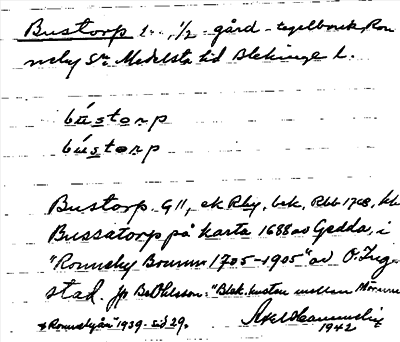 Bustorp 1 1/2 gård - tegelbruk, Ron
neby Sn Medelsta hd Blekinge l.
bústorp
bústorp
Bustorp. G 11, ek Rby, bek, Rbb 1708, kb
Bussatorp på karta 1688 av Gedda, i
"Ronneby Brunn 1705-1905" av O. Inge-
stad. jfr Bo Ohlsson: "Blek. kusten mellan Mörrum
o Ronnebyån" 1939. sid 29.
Axel
1942